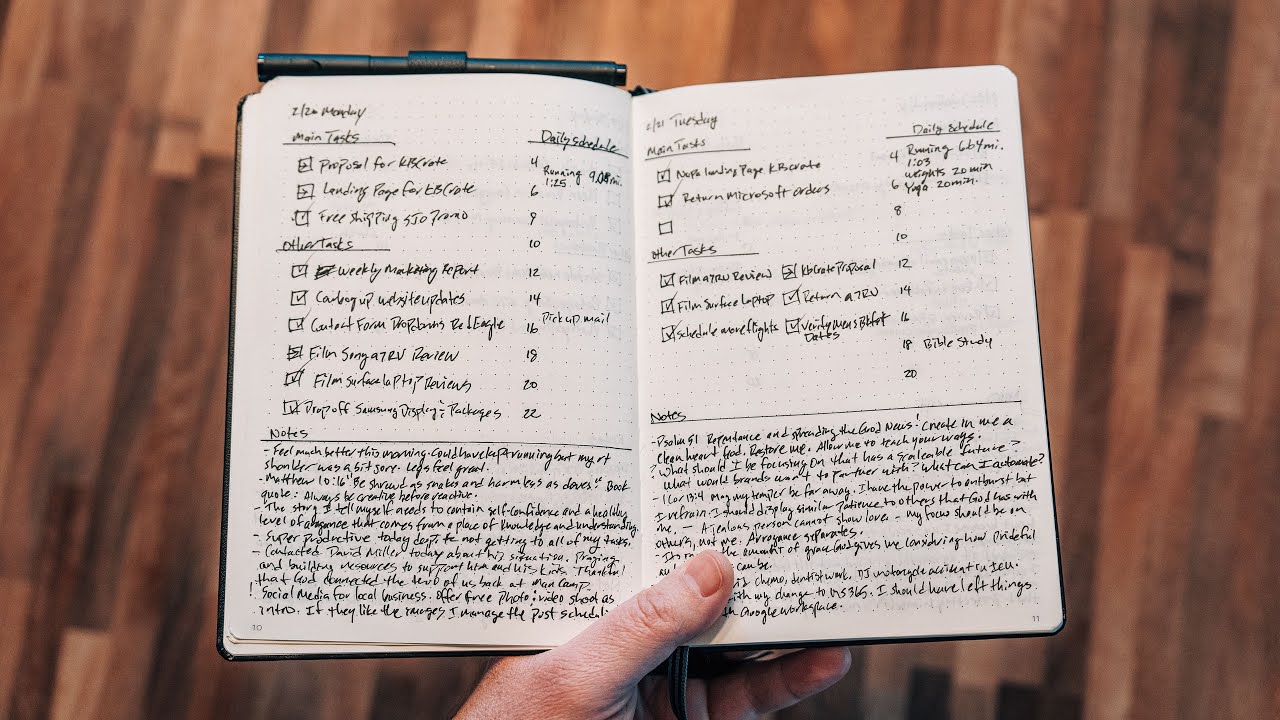 2/20 Monday
Main Tasks
Proposal for KBCrate
Landing Page for KBCrate
Free Shipping $10 Promo
Other Tasks
Weekly Marketing Report
website updates
Contact Form Dropdowns Red Eagle
Film Sony a7RV Review
Film Surface laptop Reviews
Drop off Samsung Display & Packages
Daily Schedule
4
Running 9.08 mi.
1:25
6
10
12
14
Pick up mail
16
18
20
22
Notes
- Feel much better this morning. Could have kept running but my rt
shoulder was a bit sore. Legs feel great.
- Matthew 10:16 "Be shrewd as snakes and harmless as doves." Book
quote: Always be creative before reactive.
- The story I tell myself needs to contain self-confidence and a healthy
level of that comes from a place of knowledge and understanding.
- Super productive today despite not getting to all of my tasks.
- Contacted David Miller today about his situation. Praying
and building resources to support him and his kids. Thankful
that God connected the two of us back at Man Camp.
! Social Media for local business. Offer free photo & video shoot as
intro. If they like the images, I manage the post
10
2/21 Tuesday
Main Tasks
landing Page KBCrate
Return Microsoft orders
Other Tasks
Film a7RV Review KBCrate Proposal
Film Surface laptop Return a7RV
Schedule more flights Verify Mens Bkfst
Dates
Daily Schedule
4 Running 6.64 mi.
1:03
weights 20 min
6 Yoga 20 min.
8
10
12
14
16
18 Bible Study
20
Notes
- Psalm 51 Repentance and spreading the Good News! Create in me a
clean heart God. Restore me. Allow me to teach your ways.
? What should I be focusing on that has a scaleable future?
What would brands want to partner with? What can I automate?
- 1 Cor 13:4 May my temper be far away. I have the power to outburst but
I refrain. I should display similar patience to others that God has with
me. — A jealous person cannot show love - my focus should be on
others, not me. Arrogance separates.
the amount of grace God gives me considering how prideful
can be.
chemo, dentist work, DJ motorcycle accident
my change to MS 365. I should have left things
Google workspace.
11